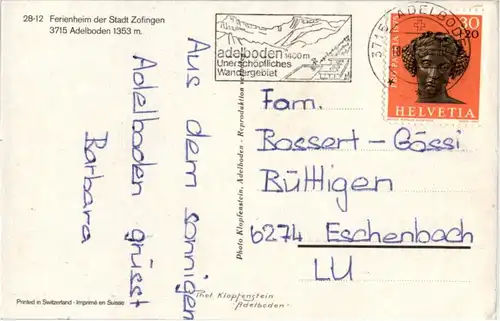 28-12 Ferienheim der Stadt Zofingen
3715 Adelboden 1353 m.
adelboden 1400 m
Unerschöpfliches
Wandergebiet
3715 ADELBODEN
PRO PATRIA
30
+20
HELVETIA
Aus dem sonnigen
Adelboden grüsst
Barbara
Photo Klopfenstein, Adelboden - Reproduktion verboten
Fam.
Bossert-Gössi
Büttligen
6274 Eschenbach
LU
Phot. Klopfenstein
Adelboden
Printed in Switzerland - Imprimé en Suisse